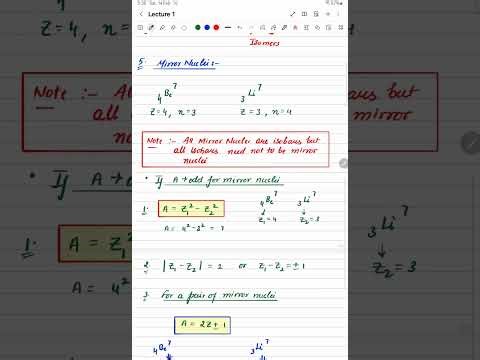 Lecture 1
Isomers
5. Mirror Nuclei :-
₄Be⁷ ₃Li⁷
Z=4, n=3 Z=3, n=4
Note :- All Mirror Nuclei are isobars but
all isobars need not to be mirror
nuclei
• If A → odd for mirror nuclei
1. A = Z₁² - Z₂² ₄Be⁷ ₃Li⁷
A = 4² - 3² = 7 Z₁=4 Z₂=3
2. |Z₁-Z₂| = 1 or Z₁-Z₂ = ±1
3. For a pair of mirror nuclei
A = 2Z ± 1
₄Be⁷ ₃Li⁷
Note :-
all
isobars but
mirror
If
1. A = Z₁
A = 4²
₃Li⁷
Z₂=3